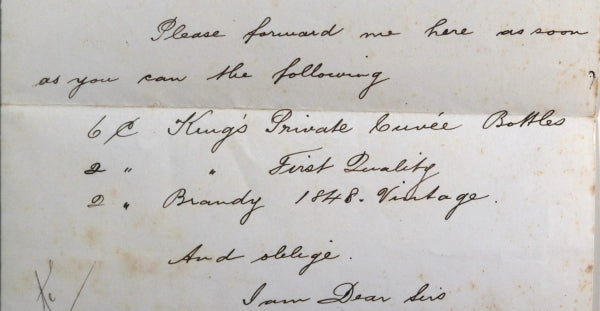 Please forward me here as soon
as you can the following
6 C King's Private Cuvée Bottles
2 " " First Quality
2 " Brandy 1848. Vintage.
And oblige.
I am Dear Sirs